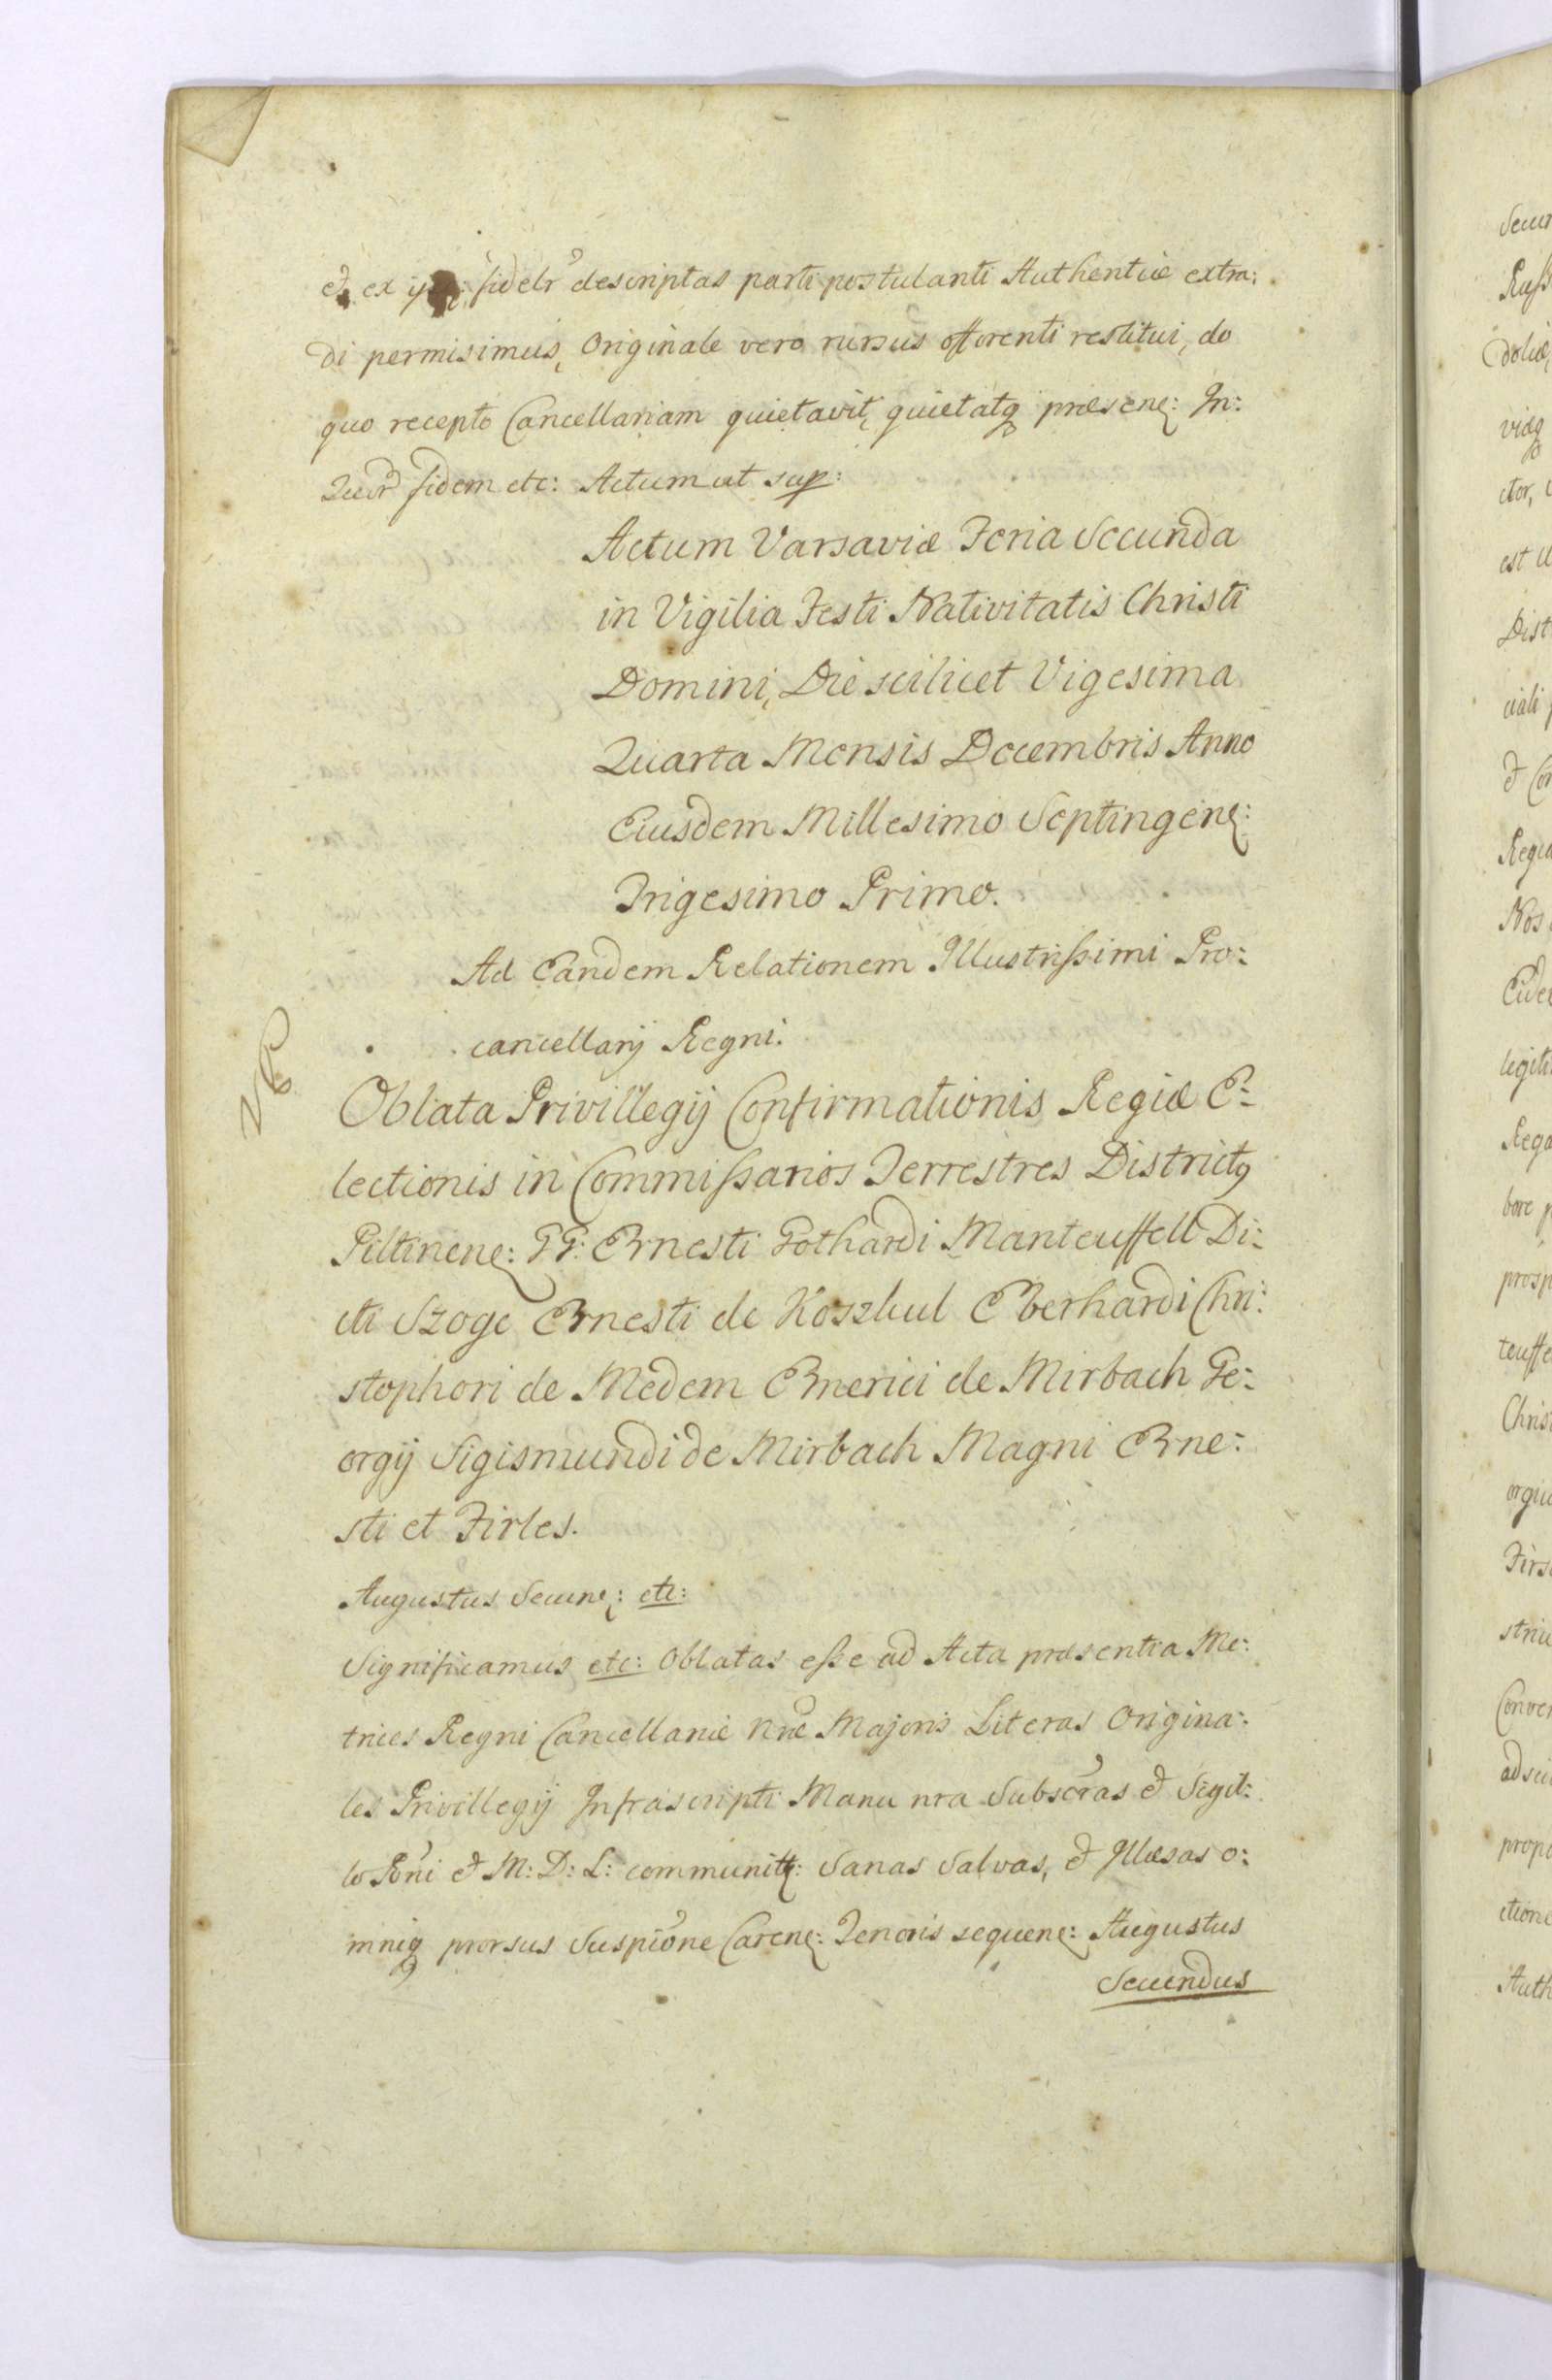 et ex fidelr descriptas parti postulanti Authenticæ extra:
di permisimus, Originale vero rursus offerenti restitui, de
quo recepto Cancellariam quietavit, quietatq præsene: In:
Quor fidem etc: Actum ut sup:
Actum Varsaviæ Feria Secunda
in Vigilia Festi Nativitatis Christi
Domini, Die scilicet Vigesima
Quarta Mensis Decembris Anno
Eiusdem Millesimo Septingene:
Trigesimo Primo.
Ad Eandem Relationem Illustrissimi Pro:
cancellarij Regni.
Oblata Privillegij Confirmationis Regiæ E:
lectionis in Commissarios Terrestres District9
Piltinene: GG: Ernesti Gothardi Manteuffell Di:
cti Szoge Ernesti de Koszkul Eberhardi Chri:
stophori de Medem Emerici de Mirbach Ge:
orgij Sigismundi de Mirbach Magni Erne:
sti et Firles.
Augustus Secune: etc:
Significamus etc: Oblatas esse ad Acta præsentia Me:
trices Regni Cancellariæ nræ Majoris Literas Origina:
les Privillegij Infrascripti Manu nra Subscras et Sigil:
lo Rni et M: D: L: communitt: Sanas Salvas, et Illæsas o:
mniq prorsus Suspione Carene: Tenoris sequene: Augustus
Secundus